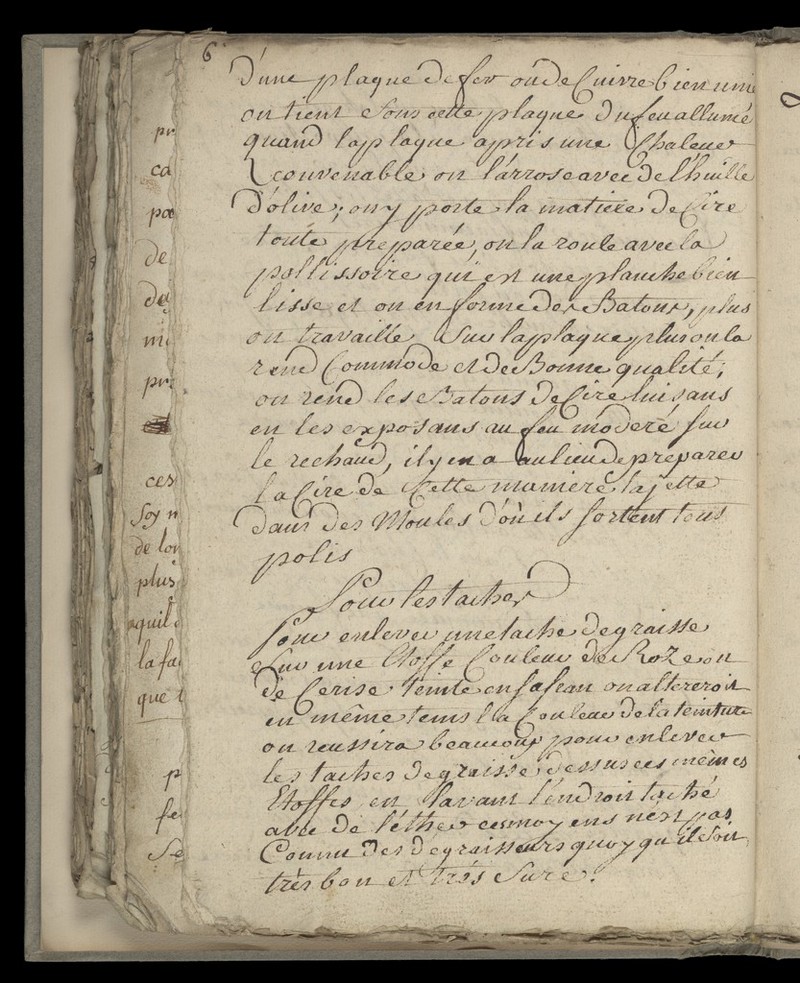 6
D'une plaque de fer ou de Cuivre bien unie
on tient Sous cette plaque du feu allumé
quand la plaque a pris une Chaleur
convenable on l'arrose avec de l'huille
d'olive; on y porte la matiere de Cire
toute preparée, on la roule avec la
pollissoire qui est une planche bien
lisse et on en forme des Batons, plus
on travaille Sur la plaque plus on la
rend Commode et de Bonne qualité;
on rend les Batons de Cire luisans
en les exposans au feu moderé sur
le rechaud, il y en a au lieu de preparer
la Cire de Cette maniere la jette
dans des Moules d'où ils sortent tous
polis
Pour les taches
Pour enlever une tache de graisse
Sur une Etoffe Couleur de Roze ou
de Cerise teinte en safran on altereroit
en même tems la Couleur de la teinture
on reussira beaucoup pour enlever
les taches de graisse dessus ces mêmes
Etoffes en lavant l'endroit taché
avec de l'éther ces moyens n'est pas
Connu des degraisseurs quoy qu'il soit
très bon et très Sure.
pr
ca
pa
de
de
mi
pr
ces
Soy n
de lon
plus
quil
la fa
que t
p
fe
Se